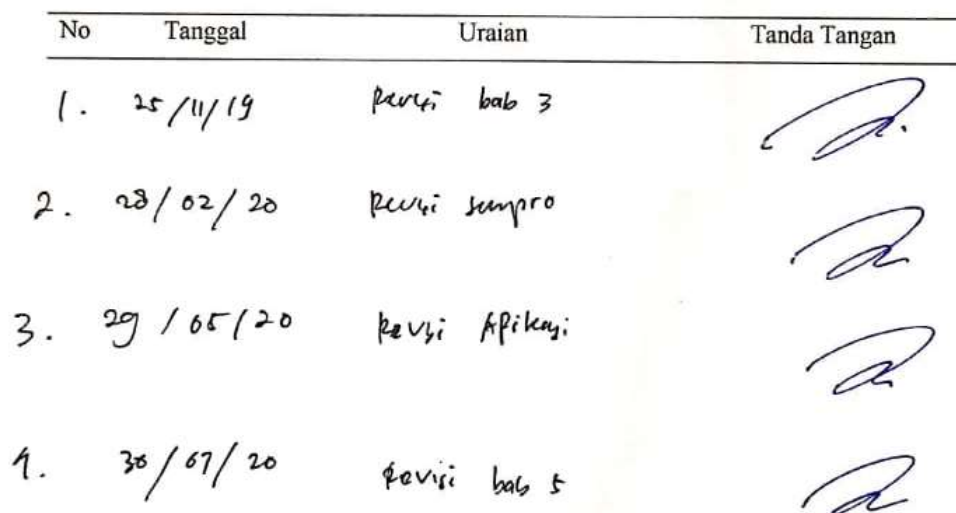 No Tanggal Uraian Tanda Tangan
1. 25/11/19 Revisi bab 3
2. 28/02/20 Revisi sempro
3. 29/05/20 Revisi Aplikasi
4. 30/07/20 Revisi bab 5